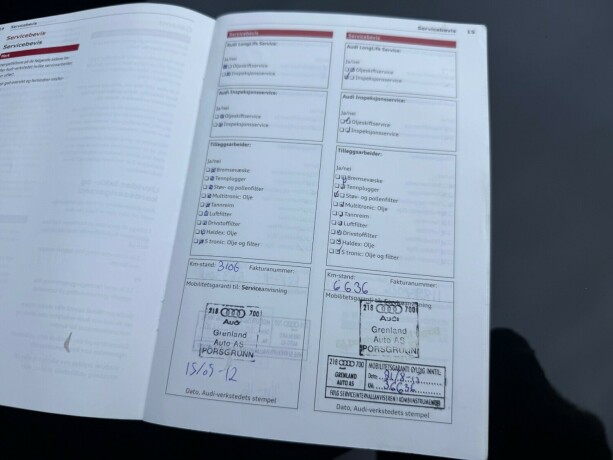 Servicebevis
Servicebevis
Servicebevis
Servicebevis
Audi LongLife Service:
Ja/nei
Oljeskiftservice
Inspeksjonsservice
Audi Inspeksjonsservice:
Ja/nei
Oljeskiftservice
Inspeksjonsservice
Tilleggsarbeider:
Ja/nei
Bremsevæske
Tennplugger
Støv- og pollenfilter
Multitronic: Olje
Tannreim
Luftfilter
Drivstoffilter
Haldex: Olje
S tronic: Olje og filter
Km-stand: 3106 Fakturanummer:
Mobilitetsgaranti til: Serviceanvisning
218 700
Audi
Grenland
Auto AS
PORSGRUNN
15/05-12
Dato, Audi-verkstedets stempel
Servicebevis 15
Servicebevis
Audi LongLife Service:
Ja/nei
Oljeskiftservice
Inspeksjonsservice
Audi Inspeksjonsservice:
Ja/nei
Oljeskiftservice
Inspeksjonsservice
Tilleggsarbeider:
Ja/nei
Bremsevæske
Tennplugger
Støv- og pollenfilter
Multitronic: Olje
Tannreim
Luftfilter
Drivstoffilter
Haldex: Olje
S tronic: Olje og filter
Km-stand: Fakturanummer:
6636
Mobilitetsgaranti til: Serviceanvisning
218 700
Audi
Grenland
Auto AS
PORSGRUNN
218 700 MOBILITETSGARANTI GYLDIG INNTIL:
GRENLAND
AUTO AS
36636
FØLG SERVICEINTERVALLANVISEREN I KOMBIINSTRUMENTET
Dato, Audi-verkstedets stempel